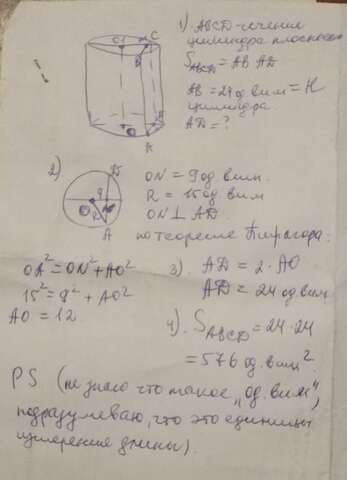 1) ABCD - сечение
цилиндра плоскостью
S ABCD = AB · AD
AB = 24 од вим = H
цилиндра
AD = ?
O1 M C
D
O
A
2)
D
9
O
R
A
ON = 9 од вим.
R = 15 од вим
ON ⊥ AD.
по теореме Пифагора:
OA² = ON² + AO²
15² = 9² + AO²
AO = 12
3) AD = 2 · AO
AD = 24 од вим
4) S ABCD = 24 · 24
= 576 од. вим².
PS (не знаю что такое „од. вим",
подразумеваю, что это единицы
измерения длины).